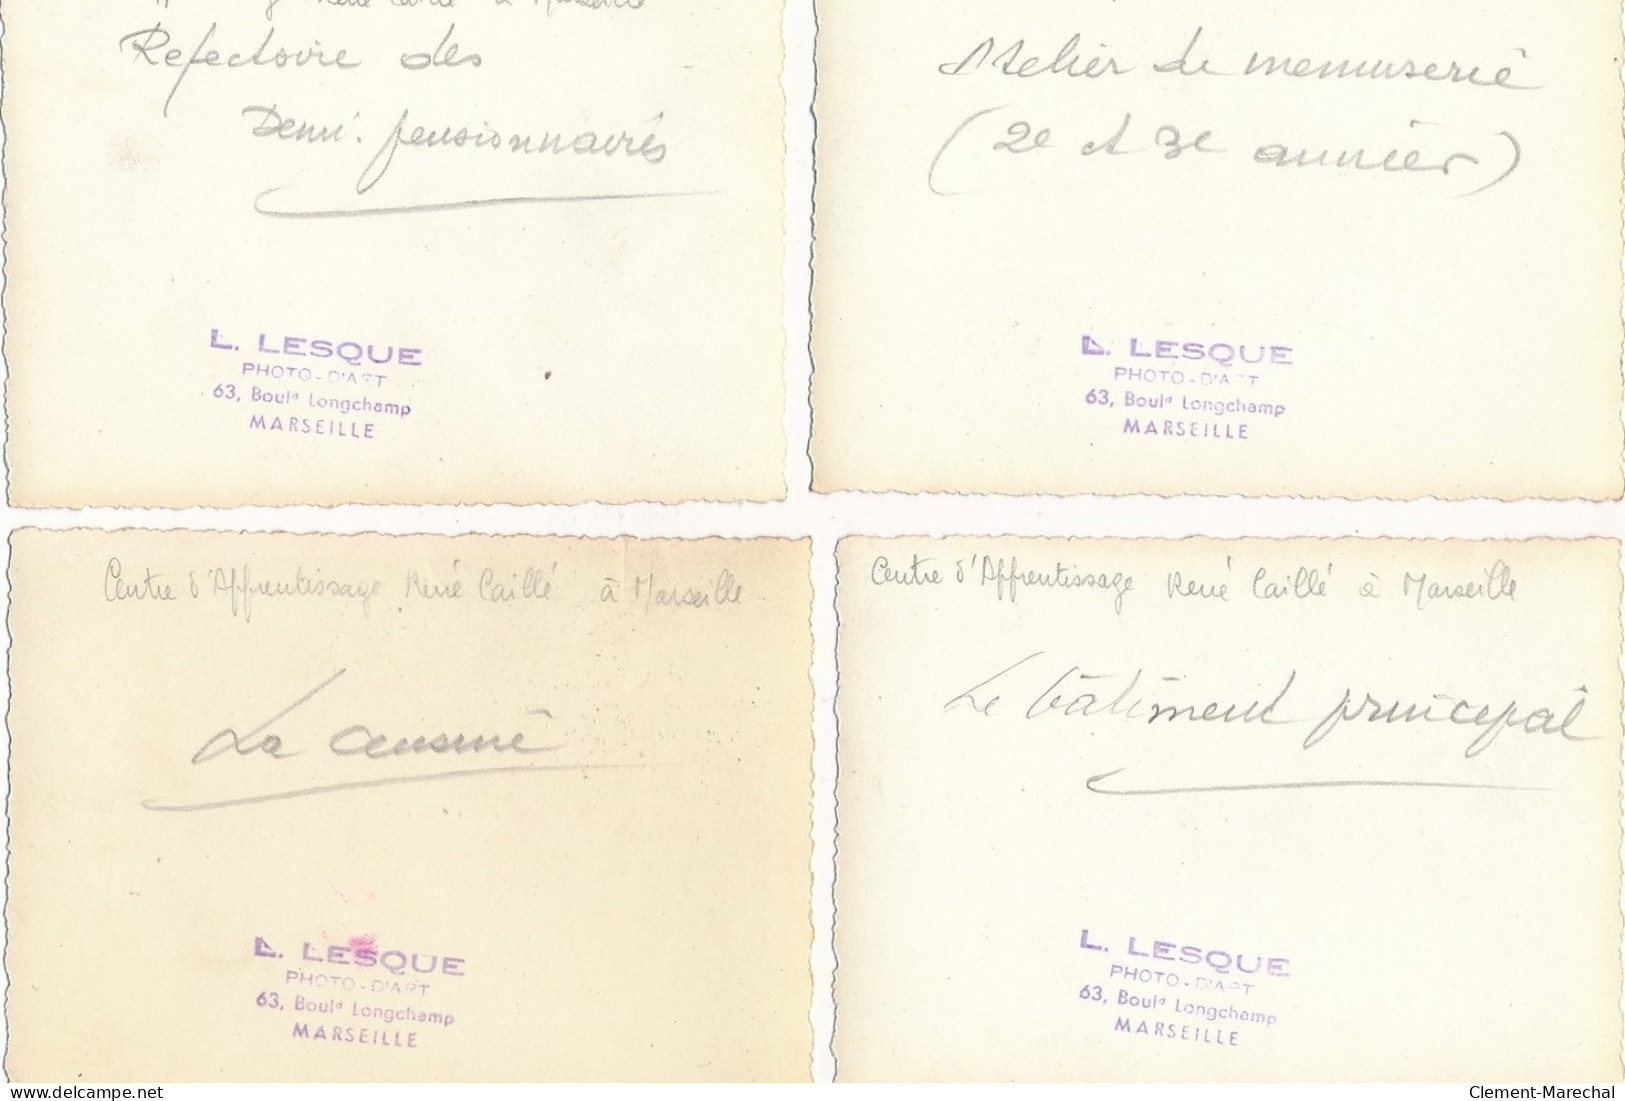 René Caillé à Marseille
Refectoire des
Demi-pensionnaires
L. LESQUE
PHOTO-D'ART
63, Boulᵈ Longchamp
MARSEILLE
Atelier de menuserie
(2e et 3e années)
L. LESQUE
PHOTO-D'ART
63, Boulᵈ Longchamp
MARSEILLE
Centre d'Apprentissage René Caillé à Marseille
La cuisine
L. LESQUE
PHOTO-D'ART
63, Boulᵈ Longchamp
MARSEILLE
Centre d'Apprentissage René Caillé à Marseille
Le bâtiment principal
L. LESQUE
PHOTO-D'ART
63, Boulᵈ Longchamp
MARSEILLE
delcampe.net
Clement-Marechal